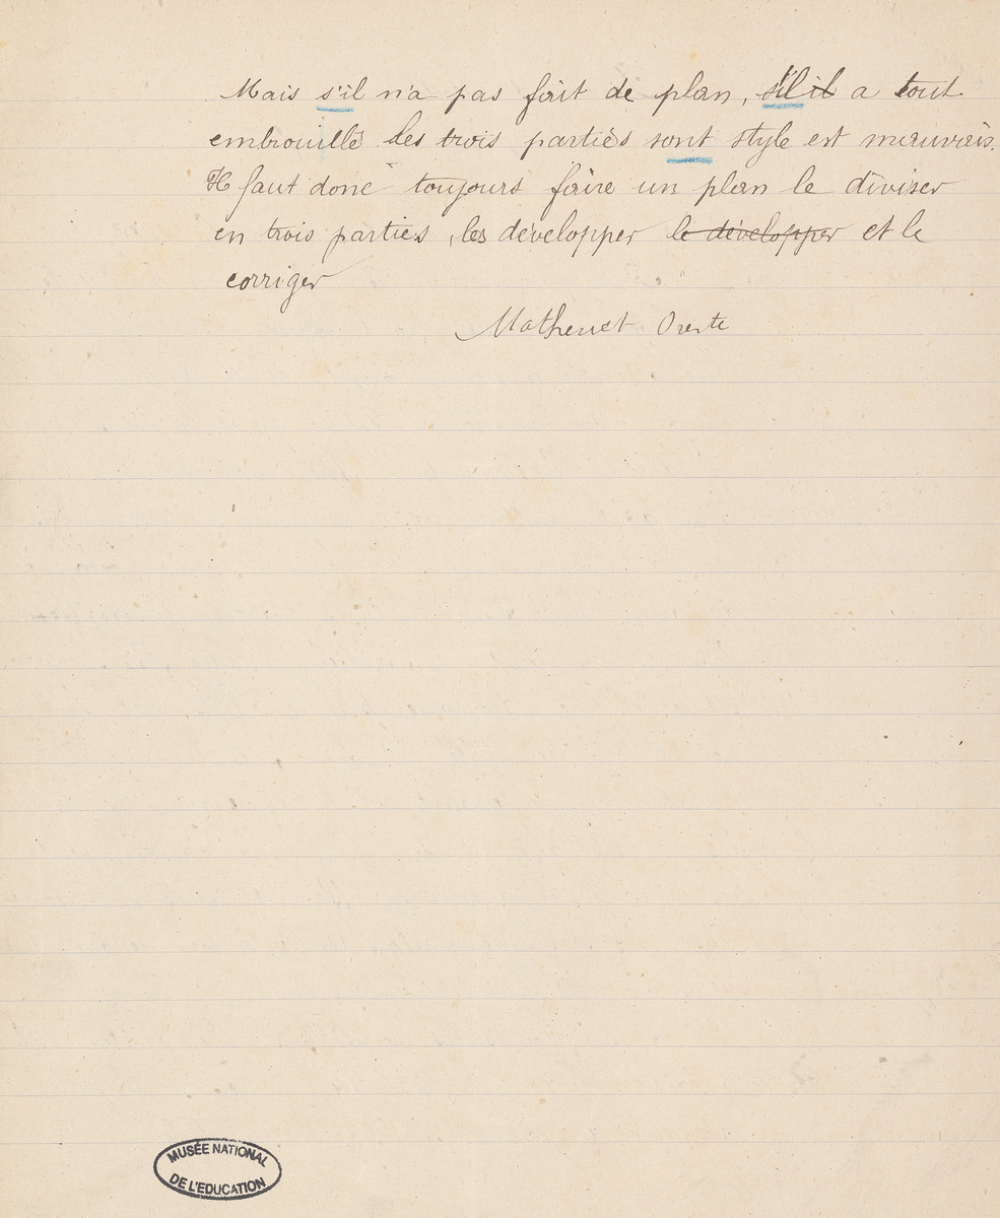 Mais s'il n'a pas fait de plan, s'il il a tout
embrouillé les trois parties sont style est mauvais.
Il faut donc toujours faire un plan le diviser
en trois parties, les développer le développer et le
corriger
Mathenet Oreste
MUSÉE NATIONAL
DE L'EDUCATION